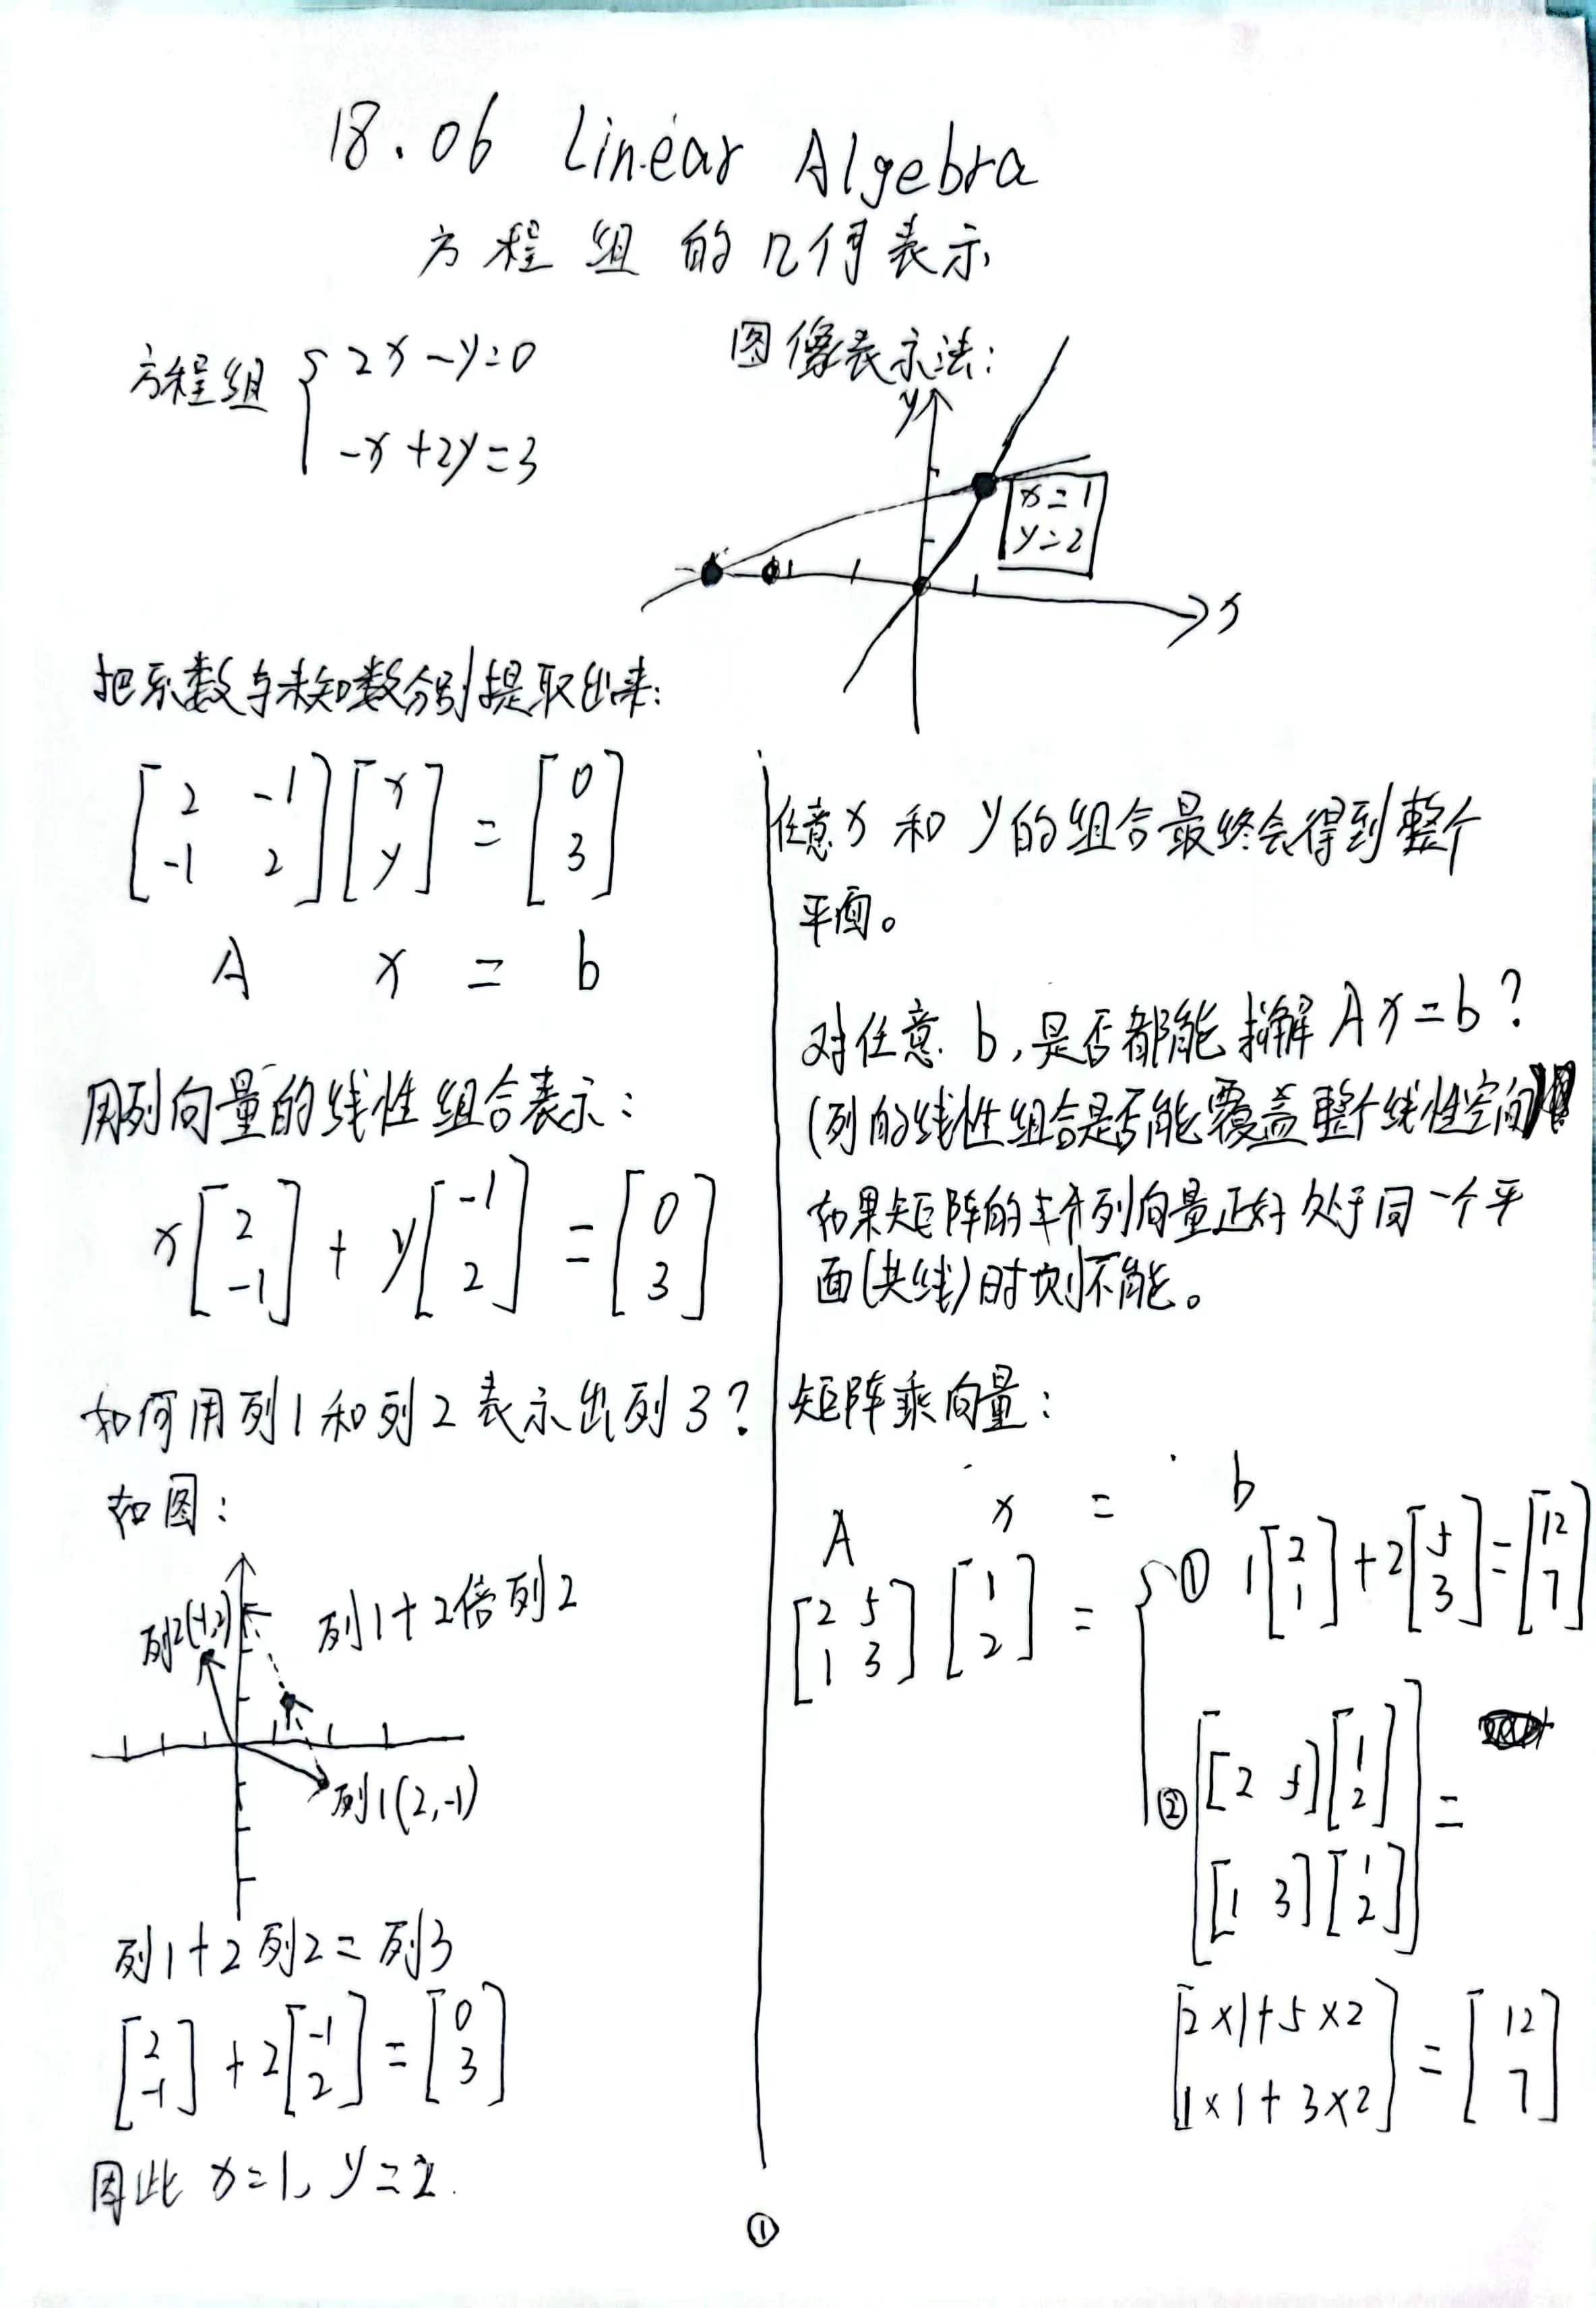 18.06 Linear Algebra
方程组的几何表示
方程组 { 2x-y=0
-x+2y=3
图像表示法:
y
x=1
y=2
x
把系数与未知数分别提取出来:
[2 -1; -1 2] [x; y] = [0; 3]
A x = b
用列向量的线性组合表示:
x[2; -1] + y[-1; 2] = [0; 3]
如何用列1和列2表示出列3?
如图:
列2(-1,2)
列1+2倍列2
列1(2,-1)
列1+2列2=列3
[2; -1] + 2[-1; 2] = [0; 3]
因此 x=1, y=2.
任意x和y的组合最终会得到整个
平面。
对任意b,是否都能求解Ax=b?
(列的线性组合是否能覆盖整个线性空间
如果矩阵的列向量正好处于同一个平
面(共线)时则不能。
矩阵乘向量:
A x = b
[2 5; 1 3] [1; 2] = { ① 1[2; 1] + 2[5; 3] = [12; 7]
② [[2 5][1; 2]; [1 3][1; 2]] =
[2×1+5×2; 1×1+3×2] = [12; 7]
①